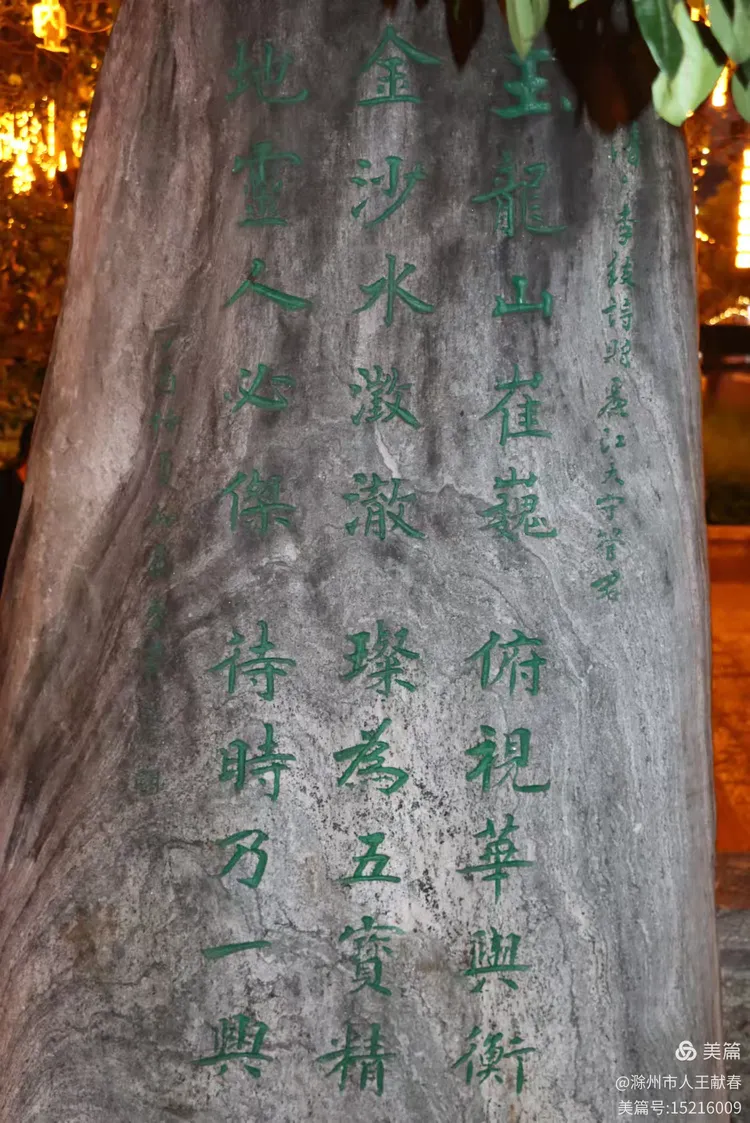 清·李綬詩贈麗江太守管君
玉龍山崔巍 俯視華與衡
金沙水澂澈 璨為五寶精
地靈人必傑 待時乃一興
美篇
@滁州市人王献春
美篇号:15216009